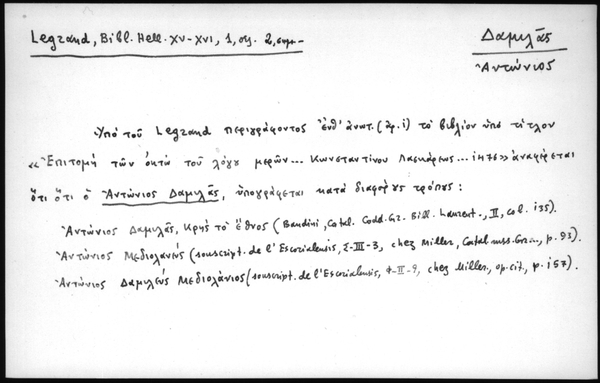 Legrand, Bibl. Hell. XV-XVI, 1, σς. 2, σημ-
Δαμιλᾶς
Ἀντώνιος
Ὑπὸ τοῦ Legrand περιγράφοντος ἔνθ' ἀνωτ. (ἀρ. 1) τὸ βιβλίον ὑπὸ τίτλον
«Ἐπιτομὴ τῶν ὀκτὼ τοῦ λόγου μερῶν... Κωνσταντίνου Λασκάρεως... 1476» ἀναφέρεται
ὅτι ὅτι ὁ Ἀντώνιος Δαμιλᾶς, ὑπογράφεται κατὰ διαφόρους τρόπους:
Ἀντώνιος Δαμιλᾶς, Κρὴς τὸ ἔθνος (Bandini, Catal. Codd. Gr. Bibl. Laurent., II, col. 135).
Ἀντώνιος Μεδιολανεύς (souscript. de l'Escorialensis, Σ-III-3, chez Miller, Catal. mss. Grecs, p. 93).
Ἀντώνιος Δαμιλεὺς Μεδιολάνιος (souscript. de l'Escorialensis, Φ-II-9, chez Miller, op. cit., p. 157).